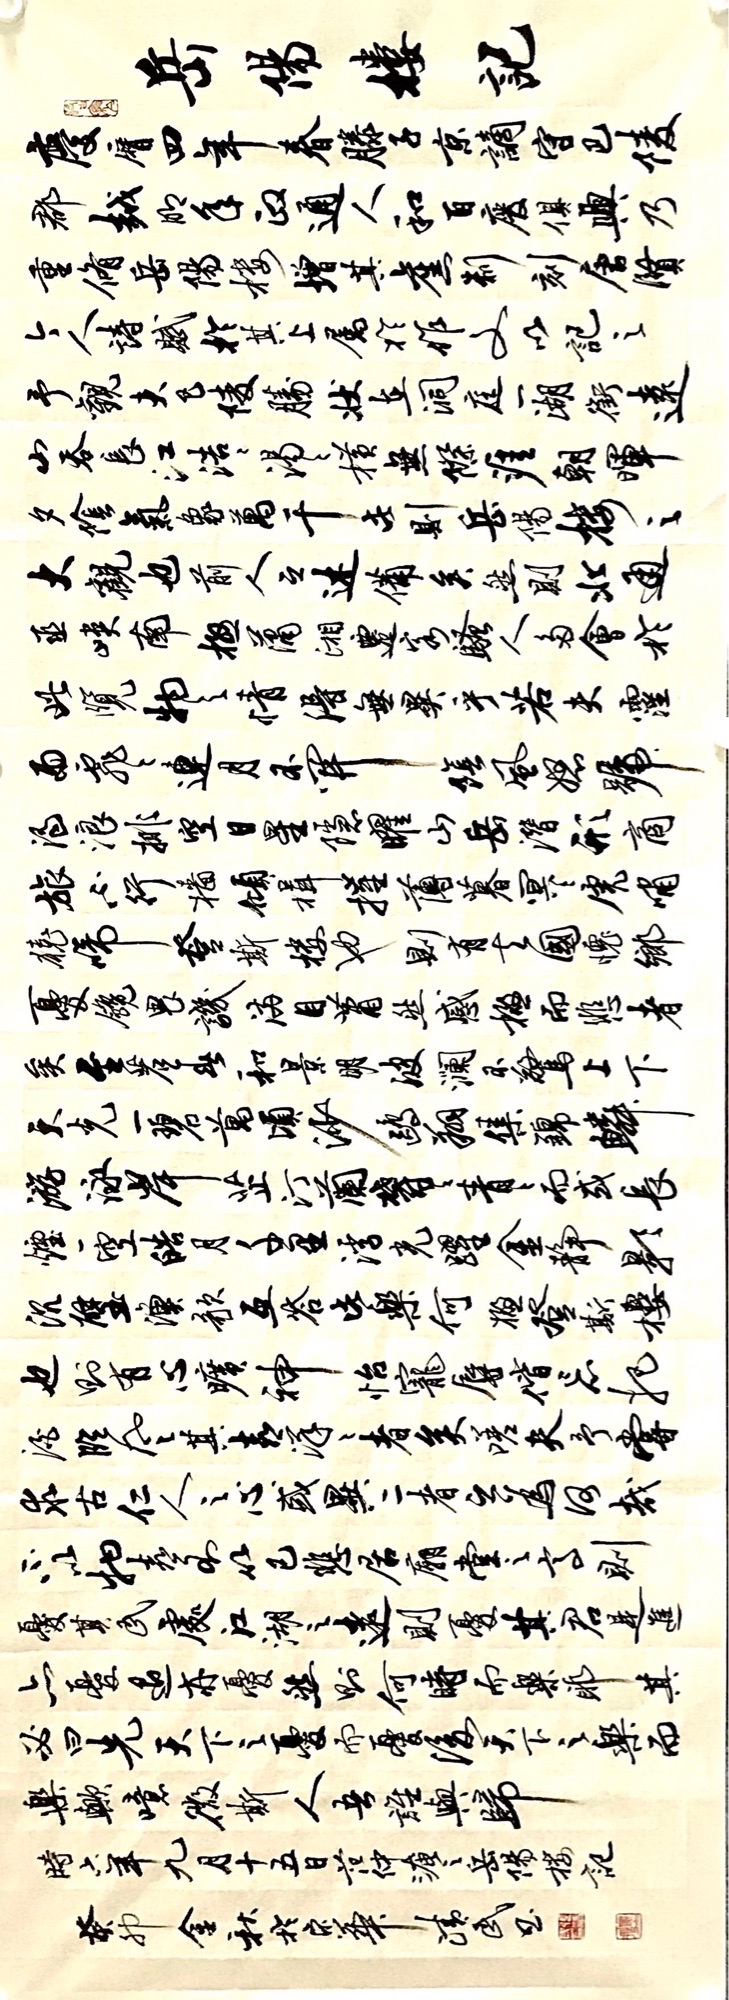 岳陽樓記
慶曆四年春滕子京謫守巴陵
郡越明年政通人和百廢俱興乃
重脩岳陽樓增其舊制刻唐賢
今人詩賦於其上屬於作文以記之
予觀夫巴陵勝狀在洞庭一湖銜遠
山吞長江浩浩湯湯橫無際涯朝暉
夕陰氣象萬千此則岳陽樓之
大觀也前人之述備矣然則北通
巫峽南極瀟湘遷客騷人多會於
此覽物之情得無異乎若夫霪
雨霏霏連月不開陰風怒號
濁浪排空日星隱曜山岳潛形商
旅不行檣傾楫摧薄暮冥冥虎嘯
猿啼登斯樓也則有去國懷鄉
憂讒畏譏滿目蕭然感極而悲者
矣至若春和景明波瀾不驚上下
天光一碧萬頃沙鷗翔集錦鱗
游泳岸芷汀蘭郁郁青青而或長
煙一空皓月千里浮光躍金靜影
沉璧漁歌互答此樂何極登斯樓
也則有心曠神怡寵辱偕忘把
酒臨風其喜洋洋者矣嗟夫予嘗
求古仁人之心或異二者之為何哉
不以物喜不以己悲居廟堂之高則
憂其民處江湖之遠則憂其君是進
亦憂退亦憂然則何時而樂耶其
必曰先天下之憂而憂後天下之樂而
樂歟噫微斯人吾誰與歸
時六年九月十五日范仲淹岳陽樓記
癸卯金秋於京華清民書